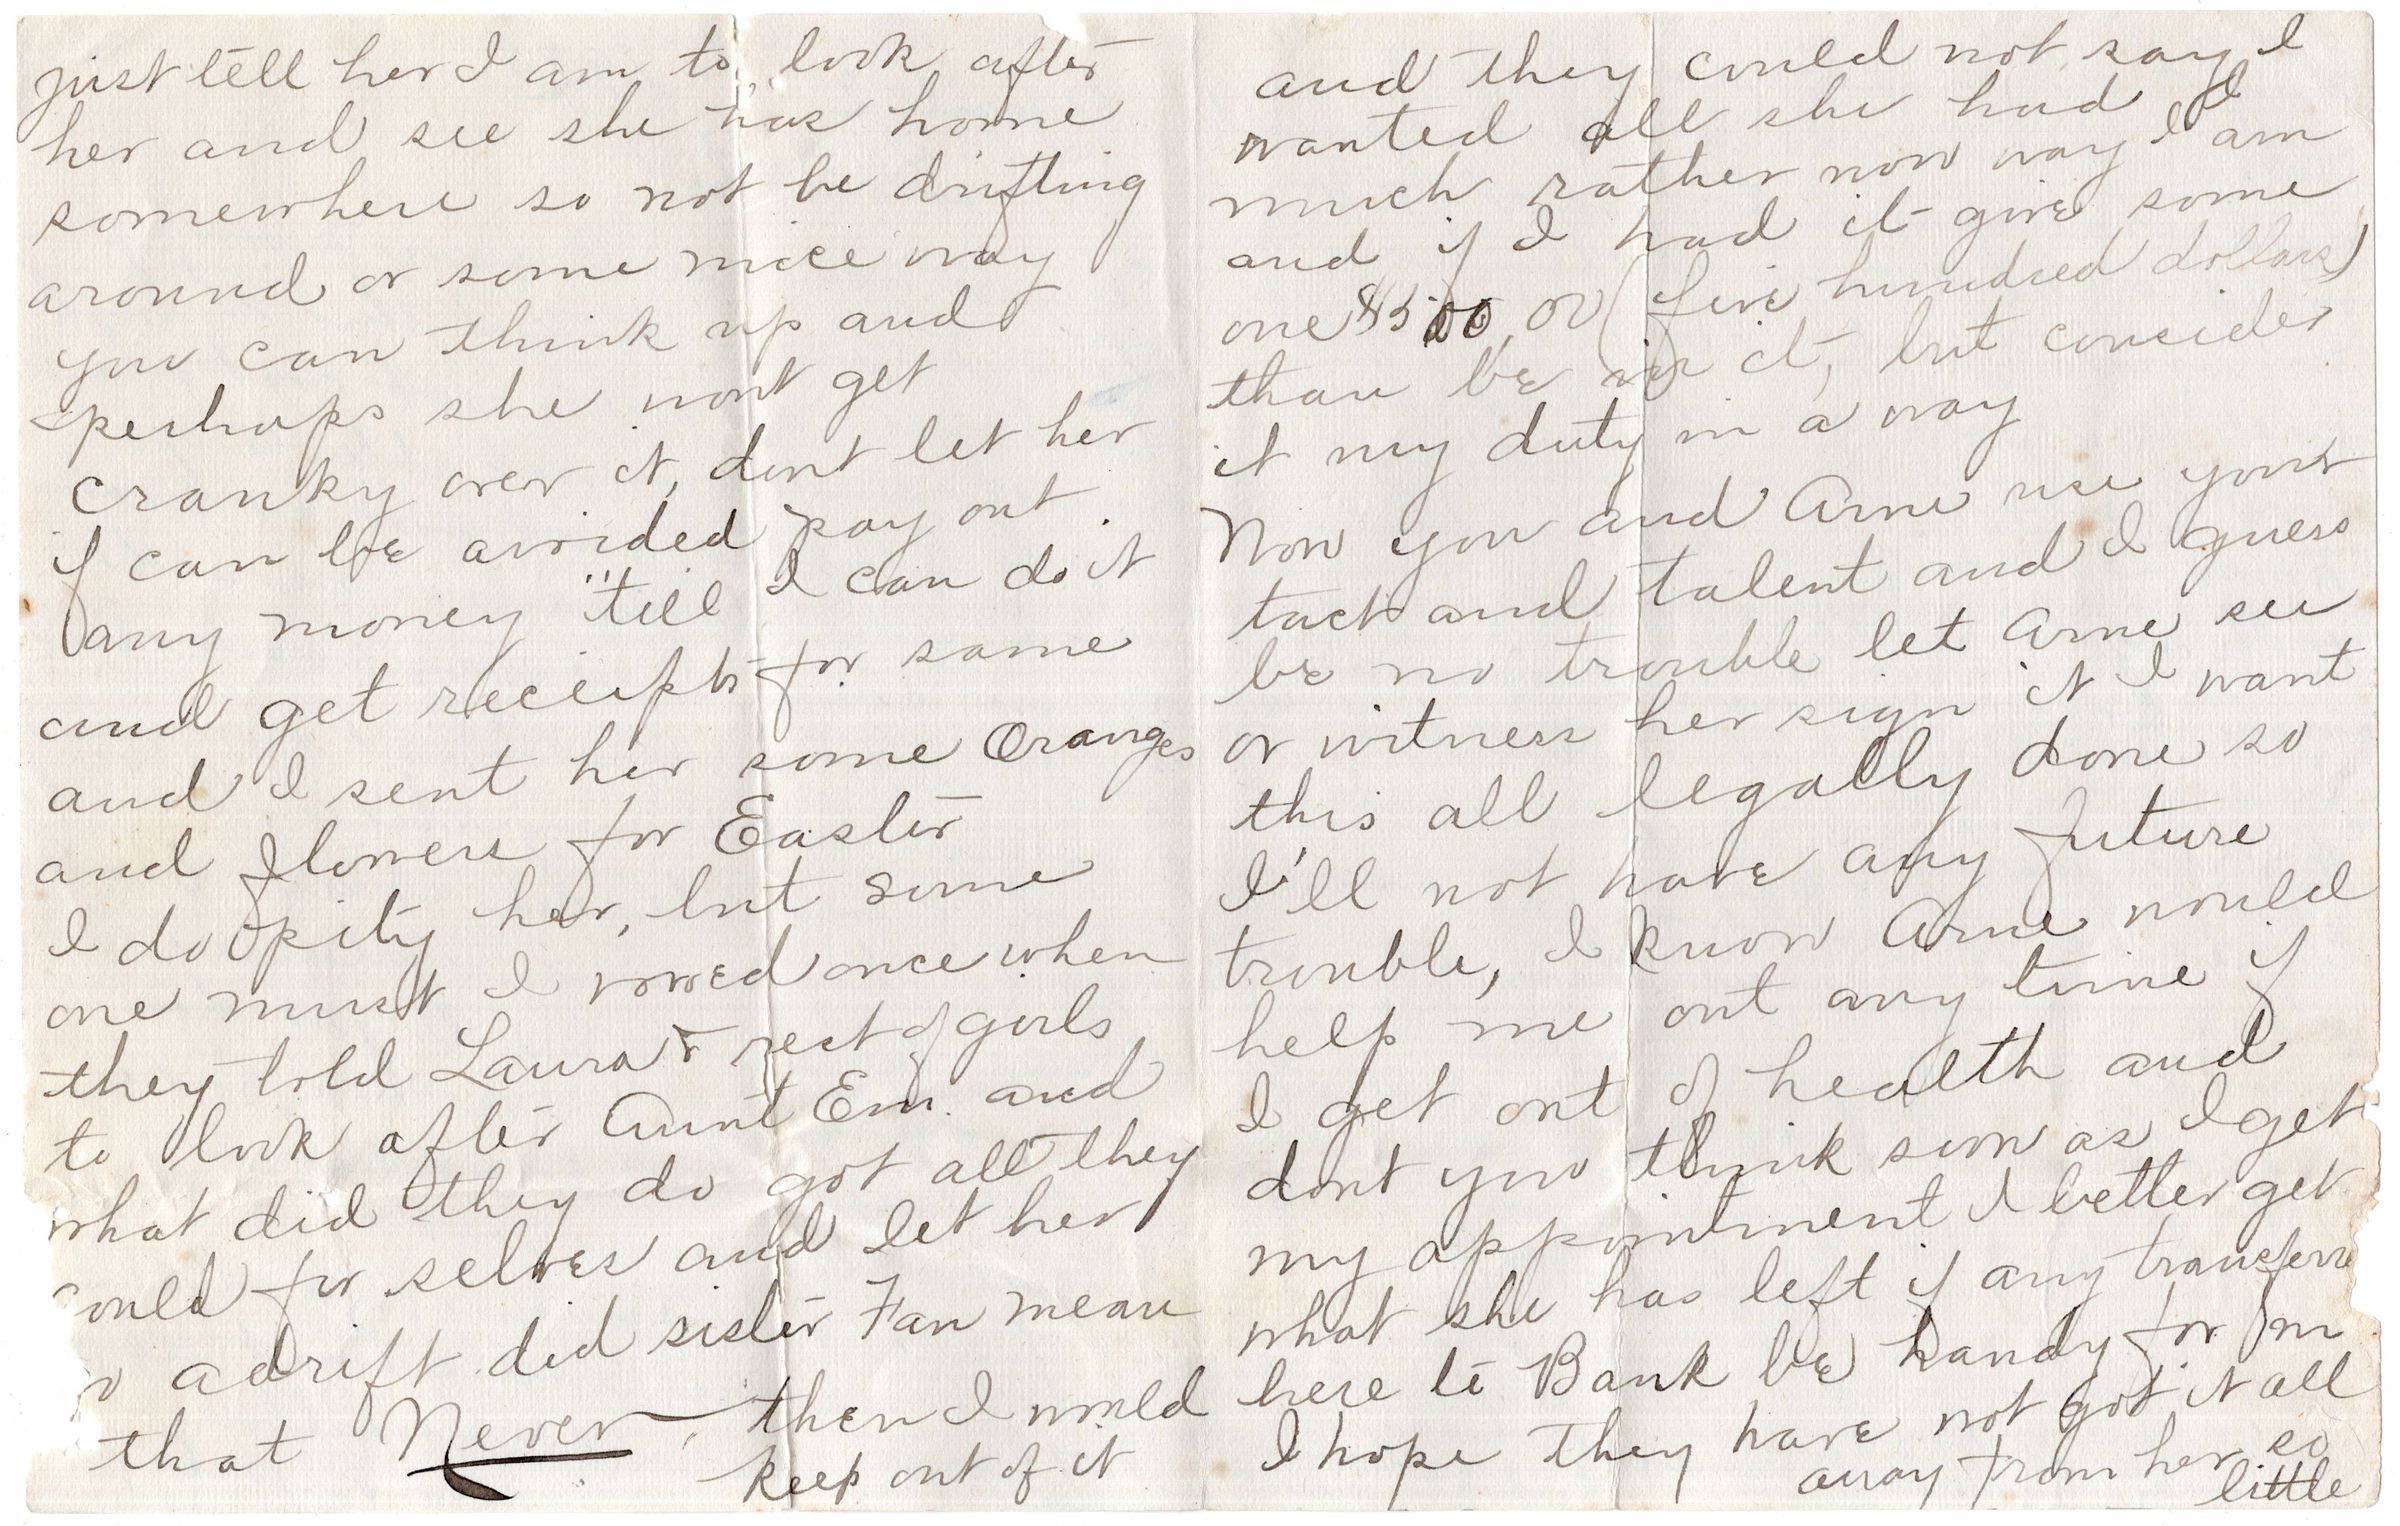 just tell her I am to look after
her and see she has home
somewhere so not be drifting
around or some nice way
you can think up and
perhaps she wont get
cranky over it, dont let her
if can be avoided pay out
any money "till I can do it
and get receipts for same
and I sent her some Oranges
and flowers for Easter
I do pity her, but some
one must I vowed once when
they told Laura & rest of girls
to look after Aunt Em. and
what did they do got all they
could for selves and let her
adrift did sister Fan mean
that Never then I would
keep out of it
and they could not say I
wanted all she had I
much rather now way I am
and if I had it give some
one $500 or (five hundred dollars)
than be in it, but consider
it my duty in a way
Now you and Arne use your
tact and talent and I guess
be no trouble let Arne see
or witness her sign it I want
this all legally done so
I'll not have any future
trouble, I know Arne would
help me out any time if
I get out of health and
dont you think soon as I get
my appointment I better get
what she has left if any transferre
here to Bank be handy for m
I hope they have not got it all
away from her so
little